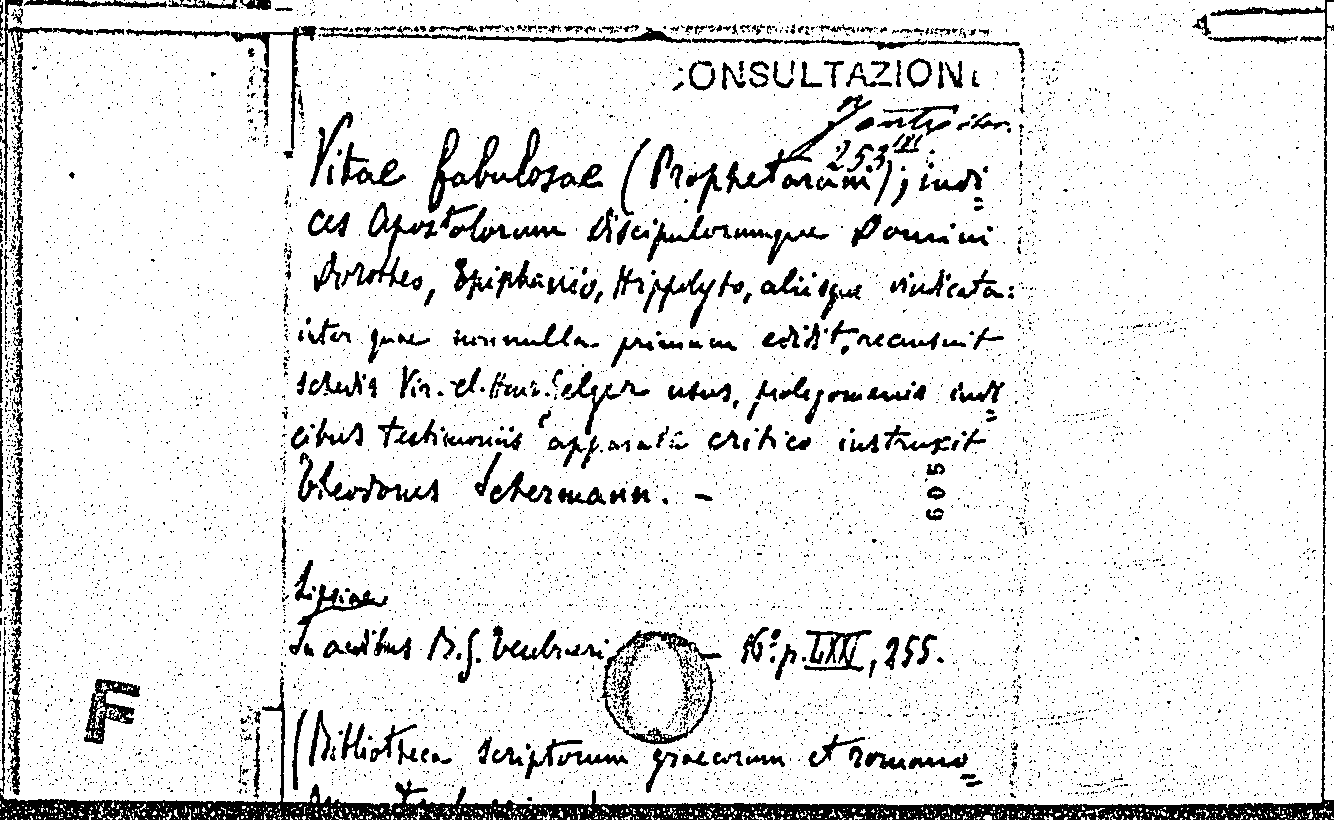 CONSULTAZIONE
253 III
Vitae fabulosae (Prophetarum); indi=
ces Apostolorum Discipulorumque Domini
Dorotheo, Epiphanio, Hippolyto, aliisque vindicata:
inter quae nonnulla primum edidit, recensuit
schedis Vir. cl. Henr. Gelzer usus, prolegomenis indi=
cibus testimoniis apparatu critico instruxit
Theodorus Schermann. —
605
Lipsiae
In aedibus B. G. Teubneri — 16º. p. LXXI, 255.
F
(Bibliotheca scriptorum graecorum et romano=